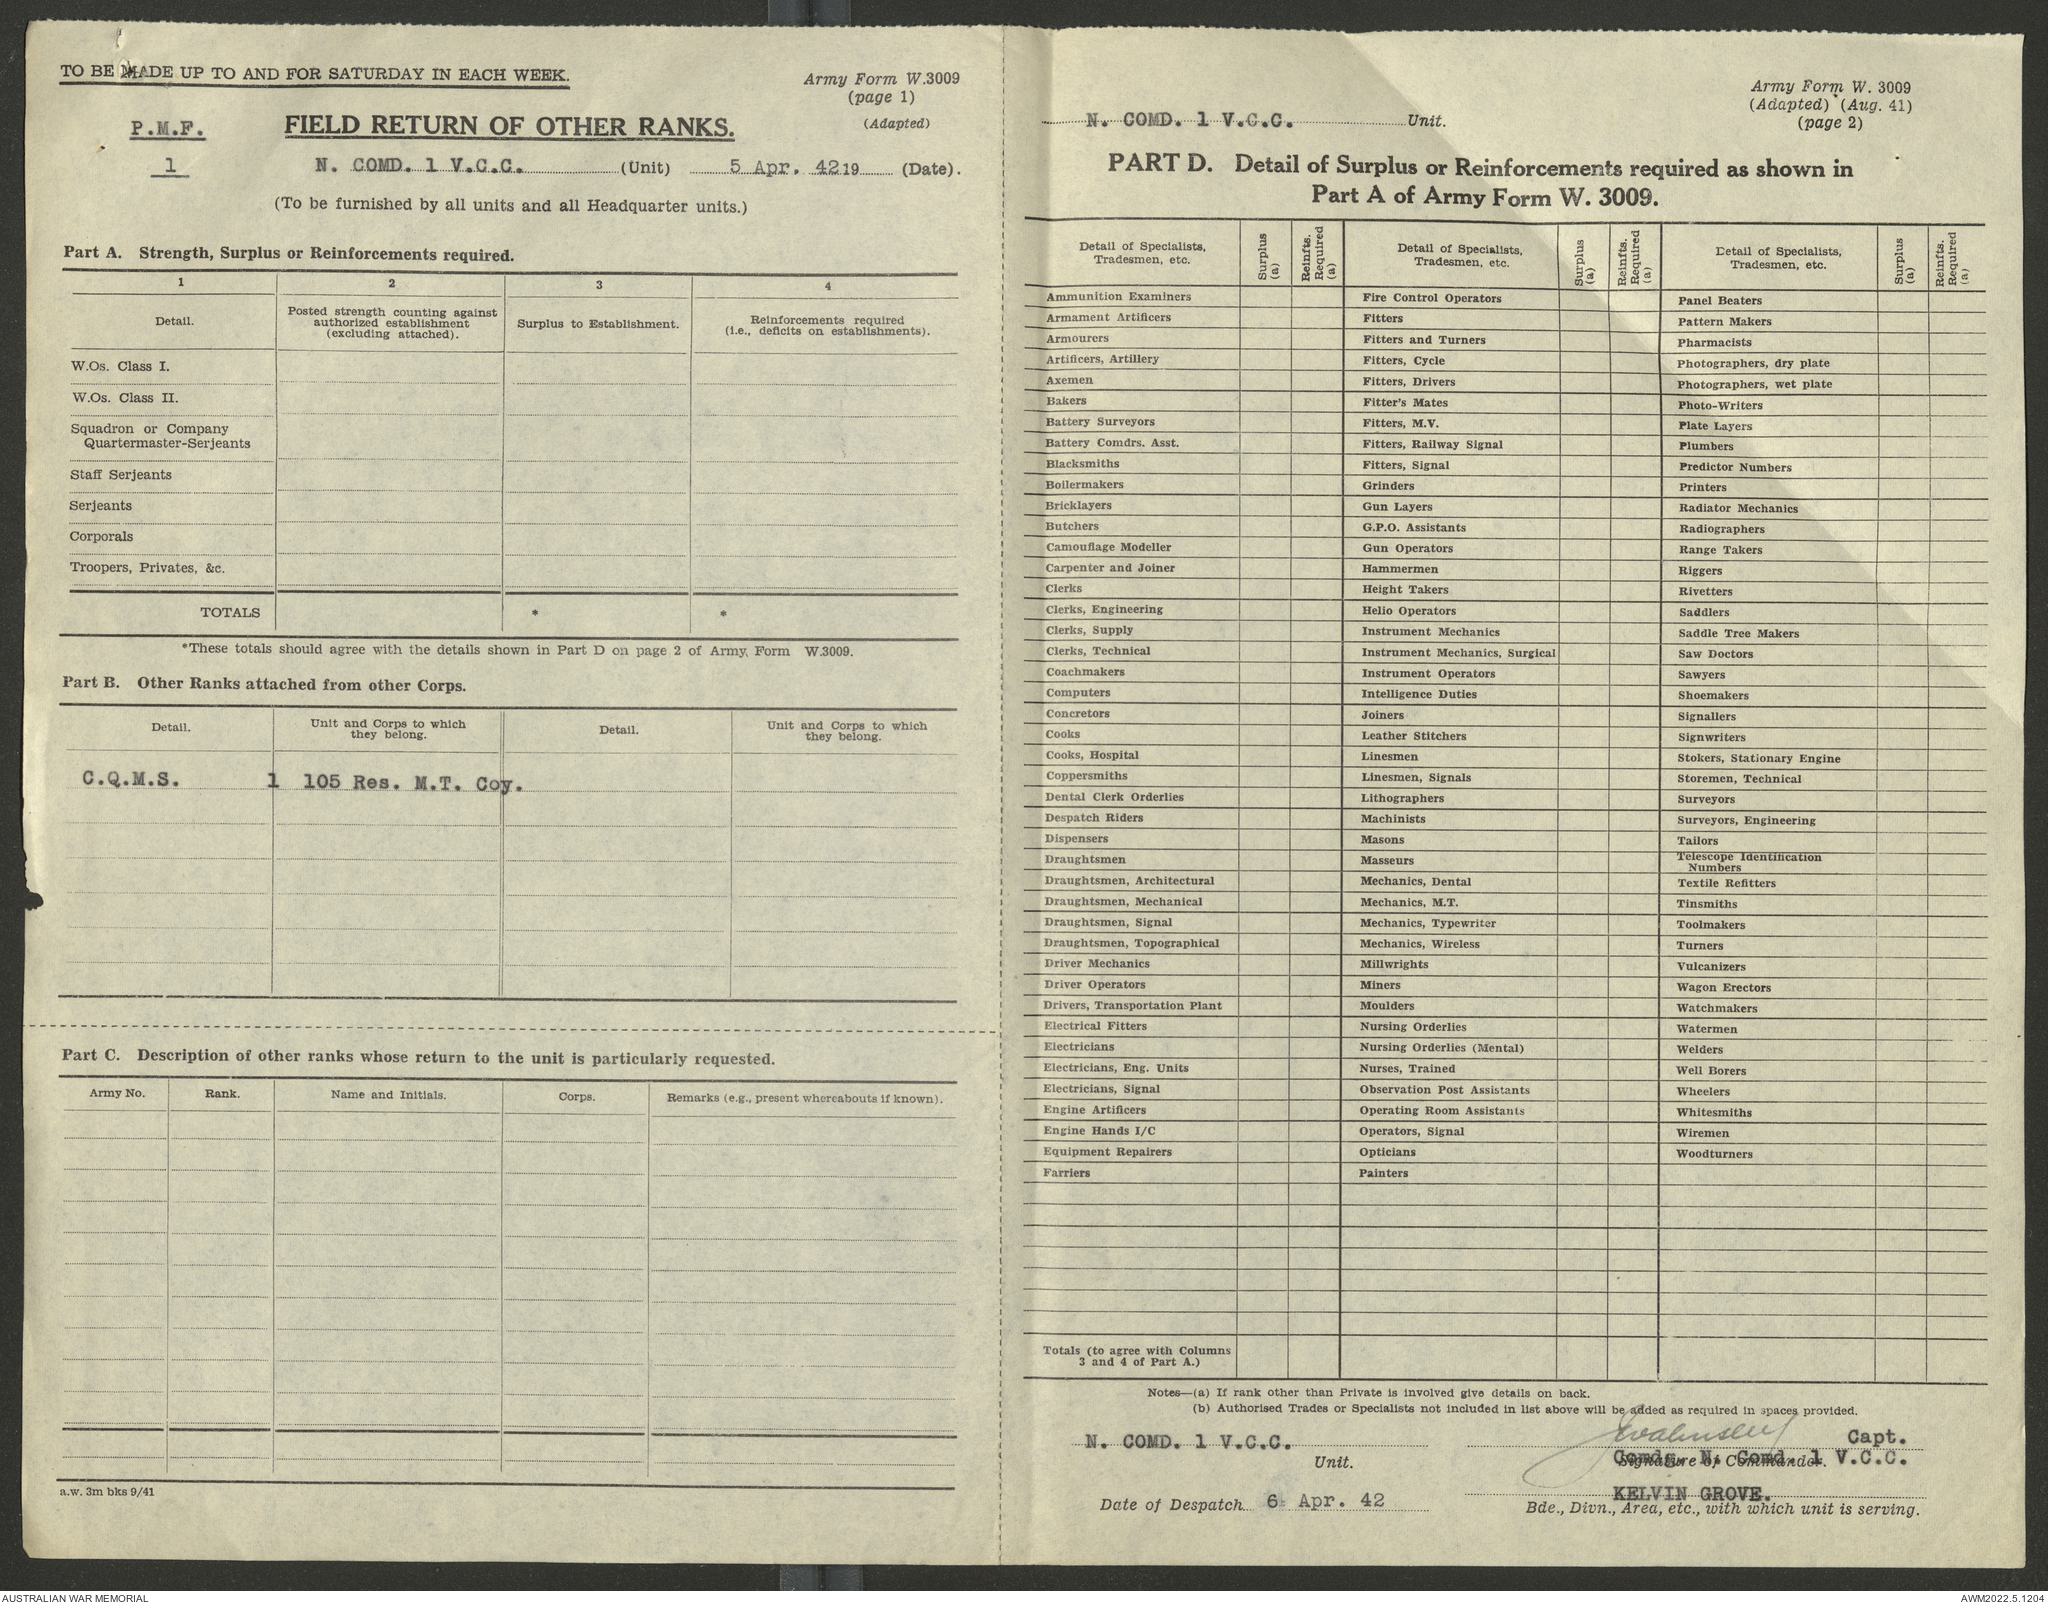 TO BE MADE UP TO AND FOR SATURDAY IN EACH WEEK.
Army Form W.3009
(page 1)
(Adapted)
P.M.F.
1
FIELD RETURN OF OTHER RANKS.
N. COMD. 1 V.C.C. (Unit) 5 Apr. 42 19 (Date).
(To be furnished by all units and all Headquarter units.)
Part A. Strength, Surplus or Reinforcements required.
1 2 3 4
Detail.
Posted strength counting against authorized establishment (excluding attached).
Surplus to Establishment.
Reinforcements required (i.e., deficits on establishments).
W.Os. Class I.
W.Os. Class II.
Squadron or Company
Quartermaster-Serjeants
Staff Serjeants
Serjeants
Corporals
Troopers, Privates, &c.
TOTALS * *
*These totals should agree with the details shown in Part D on page 2 of Army Form W.3009.
Part B. Other Ranks attached from other Corps.
Detail.
Unit and Corps to which they belong.
Detail.
Unit and Corps to which they belong.
C.Q.M.S. 1 105 Res. M.T. Coy.
Part C. Description of other ranks whose return to the unit is particularly requested.
Army No. Rank. Name and Initials. Corps. Remarks (e.g., present whereabouts if known).
a.w. 3m bks 9/41
Army Form W. 3009
(Adapted) (Aug. 41)
(page 2)
N. COMD. 1 V.C.C. Unit.
PART D. Detail of Surplus or Reinforcements required as shown in
Part A of Army Form W. 3009.
Detail of Specialists, Tradesmen, etc.
Surplus (a)
Reinfts. Required (a)
Detail of Specialists, Tradesmen, etc.
Surplus (a)
Reinfts. Required (a)
Detail of Specialists, Tradesmen, etc.
Surplus (a)
Reinfts. Required (a)
Ammunition Examiners
Armament Artificers
Armourers
Artificers, Artillery
Axemen
Bakers
Battery Surveyors
Battery Comdrs. Asst.
Blacksmiths
Boilermakers
Bricklayers
Butchers
Camouflage Modeller
Carpenter and Joiner
Clerks
Clerks, Engineering
Clerks, Supply
Clerks, Technical
Coachmakers
Computers
Concretors
Cooks
Cooks, Hospital
Coppersmiths
Dental Clerk Orderlies
Despatch Riders
Dispensers
Draughtsmen
Draughtsmen, Architectural
Draughtsmen, Mechanical
Draughtsmen, Signal
Draughtsmen, Topographical
Driver Mechanics
Driver Operators
Drivers, Transportation Plant
Electrical Fitters
Electricians
Electricians, Eng. Units
Electricians, Signal
Engine Artificers
Engine Hands I/C
Equipment Repairers
Farriers
Fire Control Operators
Fitters
Fitters and Turners
Fitters, Cycle
Fitters, Drivers
Fitter's Mates
Fitters, M.V.
Fitters, Railway Signal
Fitters, Signal
Grinders
Gun Layers
G.P.O. Assistants
Gun Operators
Hammermen
Height Takers
Helio Operators
Instrument Mechanics
Instrument Mechanics, Surgical
Instrument Operators
Intelligence Duties
Joiners
Leather Stitchers
Linesmen
Linesmen, Signals
Lithographers
Machinists
Masons
Masseurs
Mechanics, Dental
Mechanics, M.T.
Mechanics, Typewriter
Mechanics, Wireless
Millwrights
Miners
Moulders
Nursing Orderlies
Nursing Orderlies (Mental)
Nurses, Trained
Observation Post Assistants
Operating Room Assistants
Operators, Signal
Opticians
Painters
Panel Beaters
Pattern Makers
Pharmacists
Photographers, dry plate
Photographers, wet plate
Photo-Writers
Plate Layers
Plumbers
Predictor Numbers
Printers
Radiator Mechanics
Radiographers
Range Takers
Riggers
Rivetters
Saddlers
Saddle Tree Makers
Saw Doctors
Sawyers
Shoemakers
Signallers
Signwriters
Stokers, Stationary Engine
Storemen, Technical
Surveyors
Surveyors, Engineering
Tailors
Telescope Identification
Numbers
Textile Refitters
Tinsmiths
Toolmakers
Turners
Vulcanizers
Wagon Erectors
Watchmakers
Watermen
Welders
Well Borers
Wheelers
Whitesmiths
Wiremen
Woodturners
Totals (to agree with Columns
3 and 4 of Part A.)
Notes—(a) If rank other than Private is involved give details on back.
(b) Authorised Trades or Specialists not included in list above will be added as required in spaces provided.
N. COMD. 1 V.C.C.
Unit.
Capt.
Comdg. N. Comd. 1 V.C.C.
Signature of Commander.
Date of Despatch 6 Apr. 42
KELVIN GROVE.
Bde., Divn., Area, etc., with which unit is serving.
AUSTRALIAN WAR MEMORIAL
AWM2022.5.1204